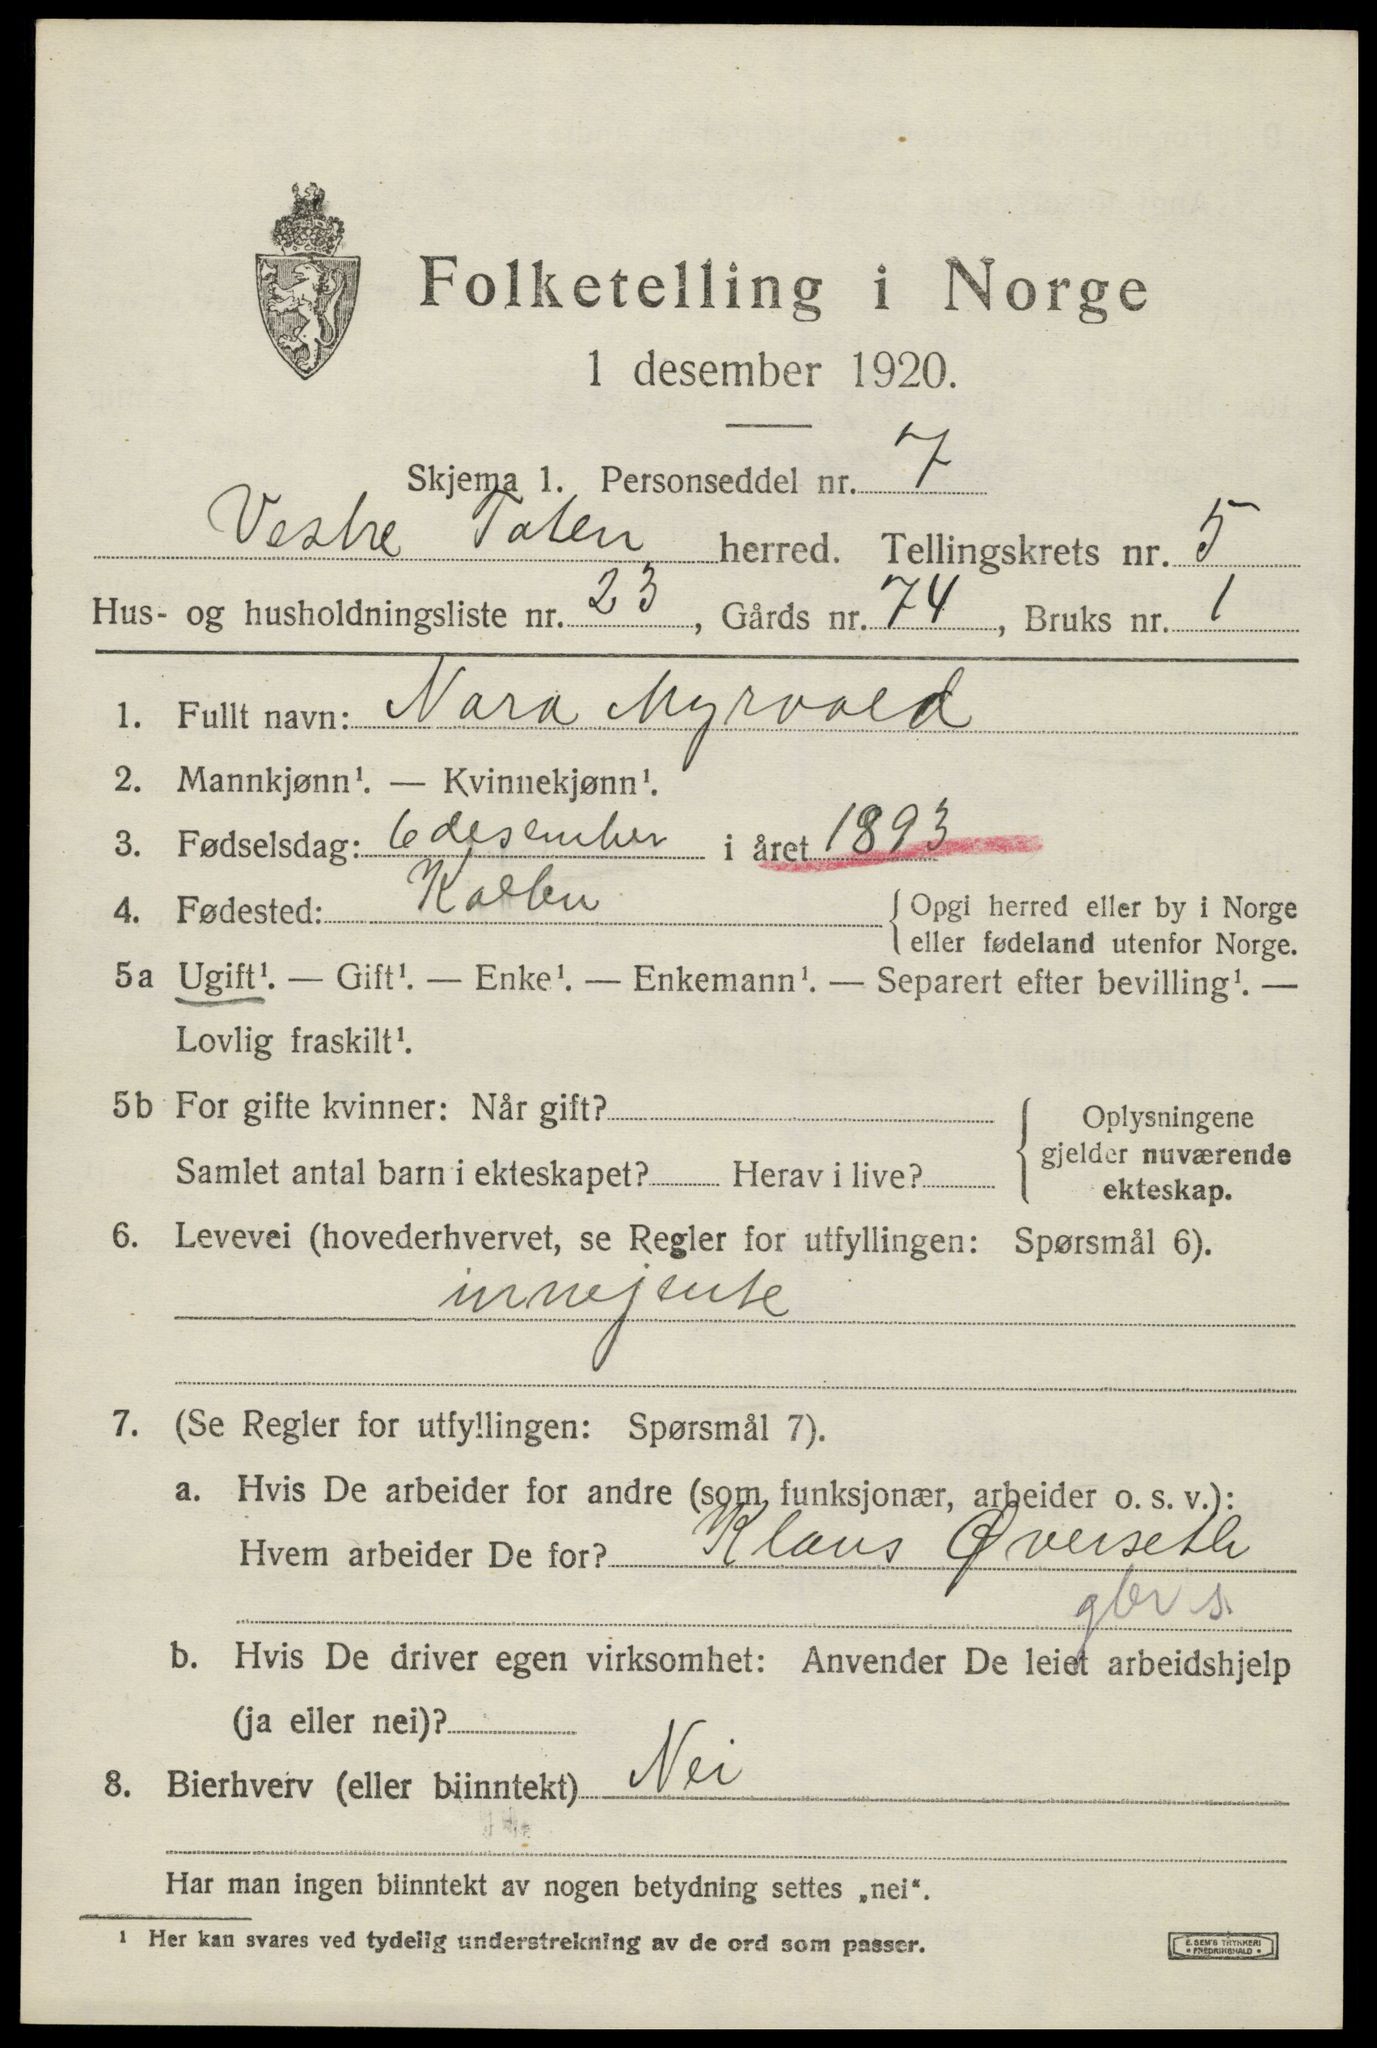 Folketelling i Norge
1 desember 1920.
Skjema 1. Personseddel nr. 7
Vestre Toten herred. Tellingskrets nr. 5
Hus- og husholdningsliste nr. 23, Gårds nr. 74, Bruks nr. 1
1. Fullt navn: Nora Myrvold
2. Mannkjønn¹. — Kvinnekjønn¹.
3. Fødselsdag: 6 desember i året 1893
4. Fødested: Kolbu {Opgi herred eller by i Norge
eller fødeland utenfor Norge.
5a Ugift¹. — Gift¹. — Enke¹. — Enkemann¹. — Separert efter bevilling¹. —
Lovlig fraskilt¹.
5b For gifte kvinner: Når gift?
Samlet antal barn i ekteskapet? Herav i live?
{Oplysningene
gjelder nuværende
ekteskap.
6. Levevei (hovederhvervet, se Regler for utfyllingen: Spørsmål 6).
innejente
7. (Se Regler for utfyllingen: Spørsmål 7).
a. Hvis De arbeider for andre (som funksjonær, arbeider o. s. v.):
Hvem arbeider De for? Klaus Øverseth
gbr s.
b. Hvis De driver egen virksomhet: Anvender De leiet arbeidshjelp
(ja eller nei)?
8. Bierhverv (eller biinntekt) Nei
Har man ingen biinntekt av nogen betydning settes „nei“.
¹ Her kan svares ved tydelig understrekning av de ord som passer.
E. SEM'S TRYKKERI
• FREDRIKSHALD •